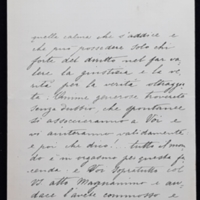 quella calma che s'addice e
che può possedere solo chi
forte del diritto nel far va
lere la giustizia e la ve
rità per la verità
Anime generose troverete
senza dubbio che spontanee
si assoceranno a Voi e
vi aiuteranno validamente
e poi che dire! tutto il mon
do è in orgasmo per questa fa
cenda e Voi sopratutto col
V/ atto Magnanimo e au
dace l'avete commosso e